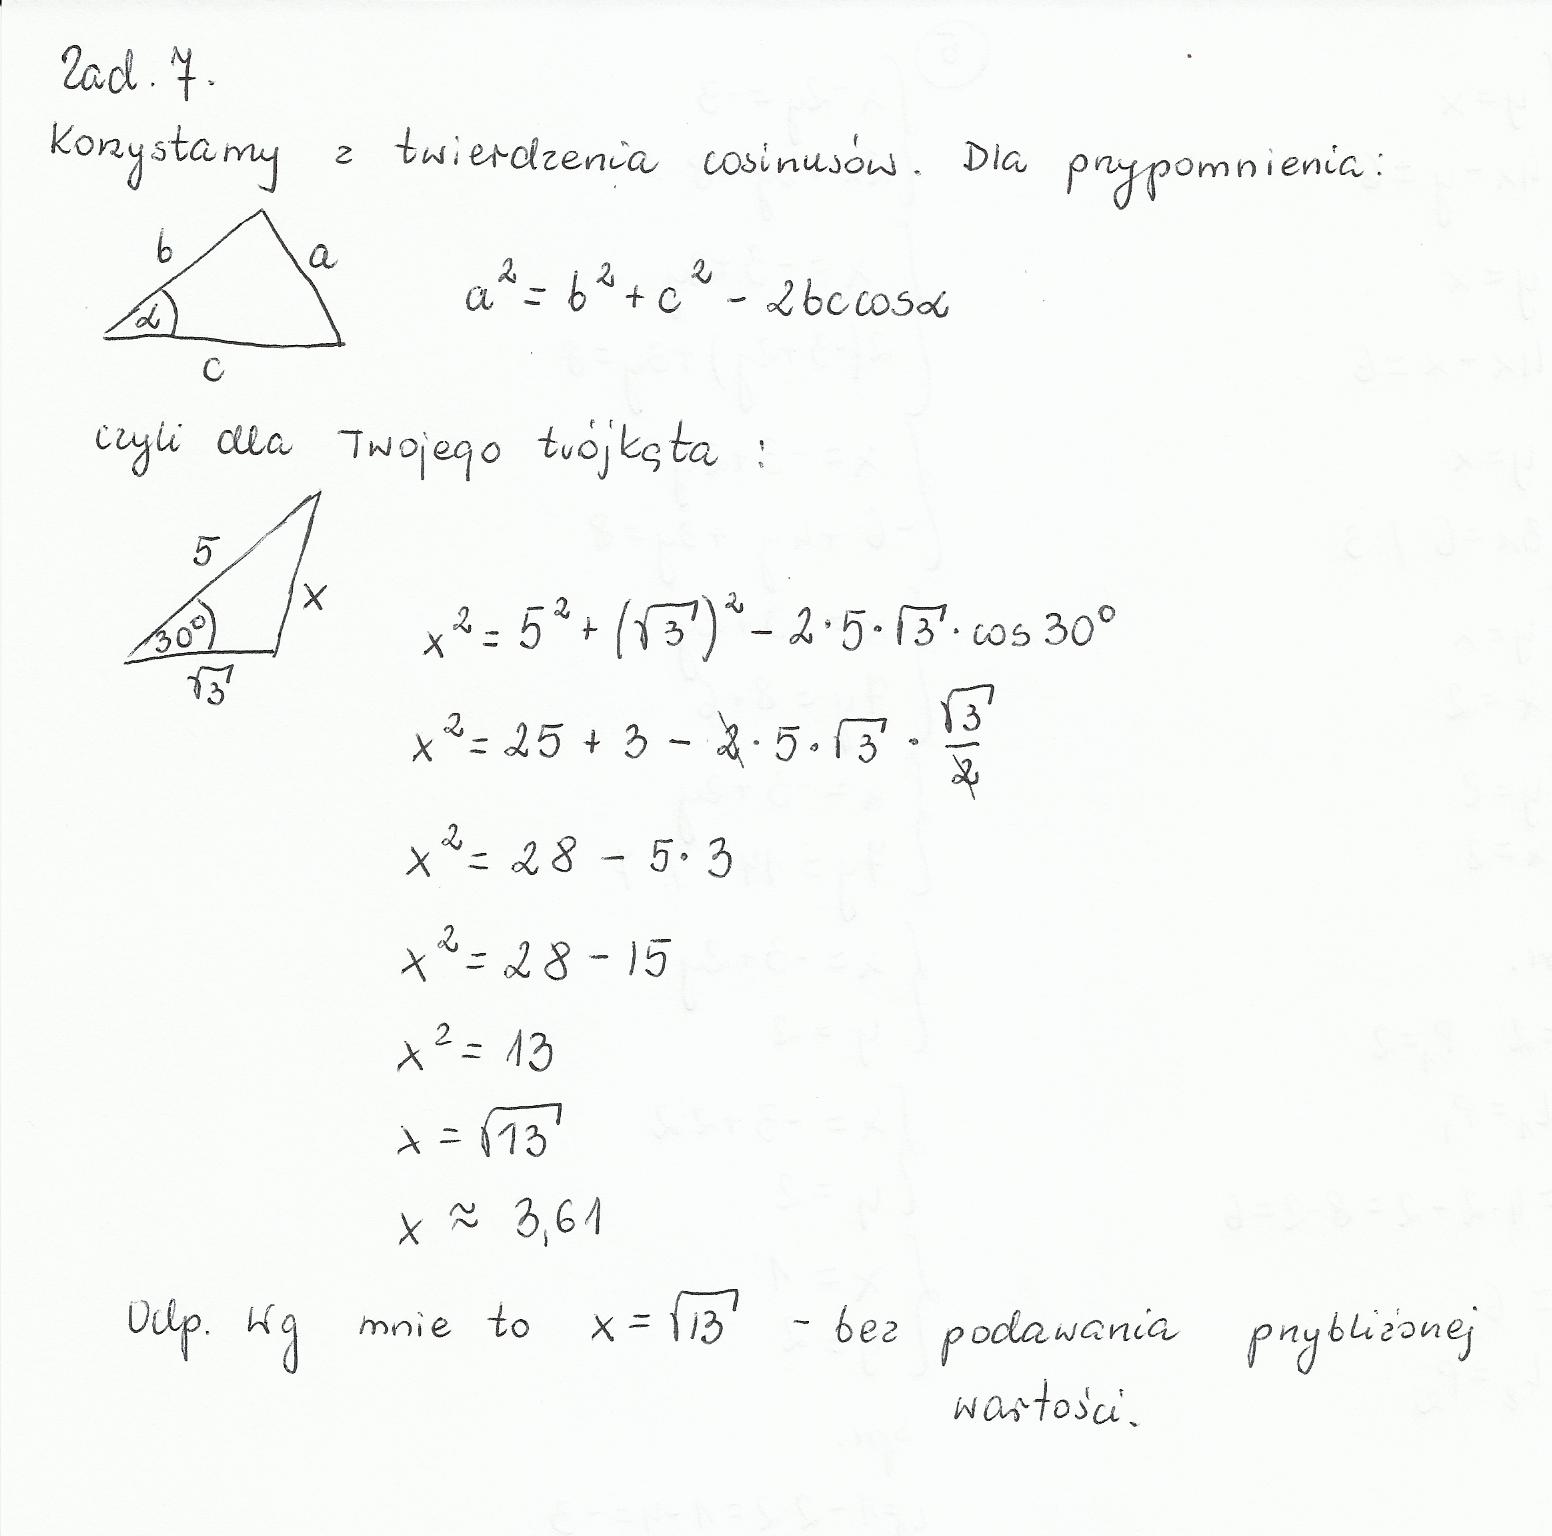 Zad. 7.
Korzystamy z twierdzenia cosinusów. Dla przypomnienia:
b
a
α
c
a² = b² + c² - 2bc cosα
czyli dla Twojego trójkąta :
5
x
30°
√3
x² = 5² + (√3)² - 2·5·√3·cos 30°
x² = 25 + 3 - 2·5·√3 · √3/2
x² = 28 - 5·3
x² = 28 - 15
x² = 13
x = √13
x ≈ 3,61
Odp. Wg mnie to x = √13 - bez podawania przybliżonej
wartości.